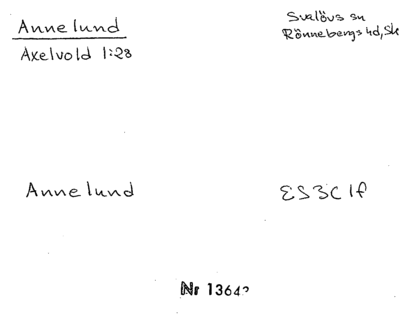 Annelund
Svalövs sn
Axelvold 1:28
Rönnebergs hd, Sk
Annelund
ES3C1f
Nr 13642